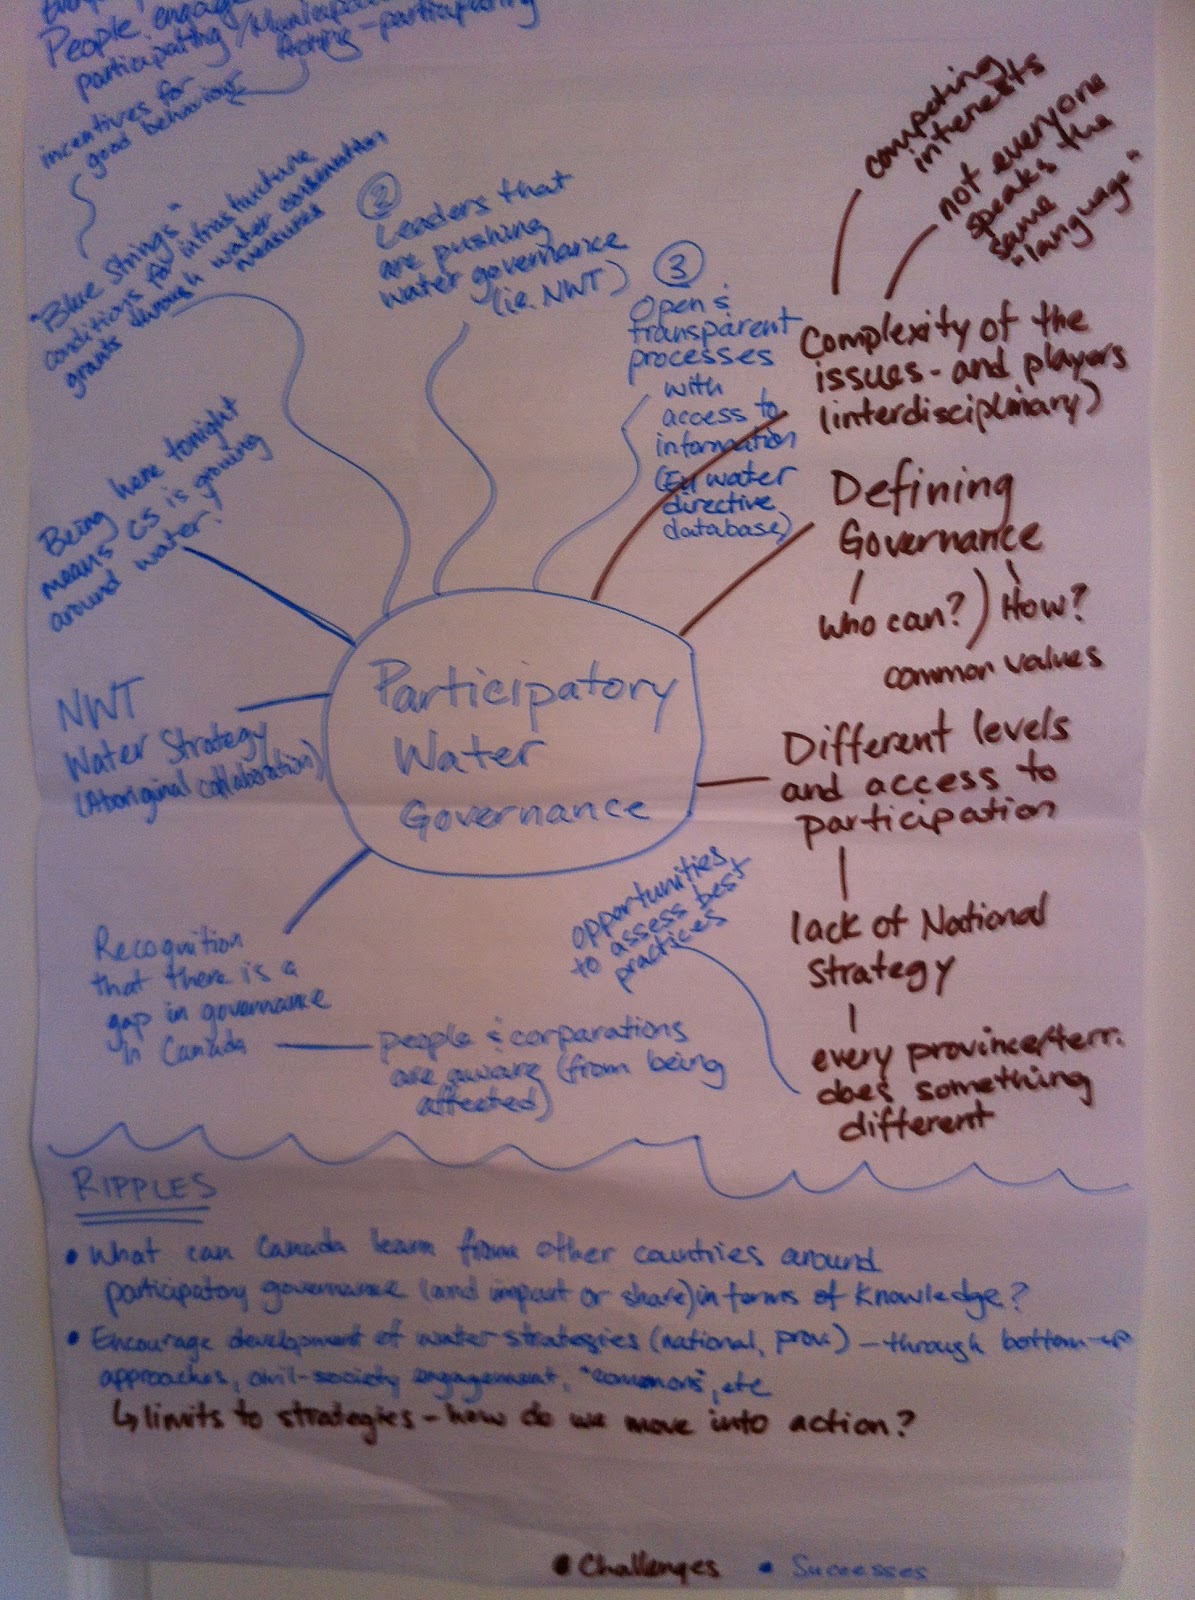 People engage
participating /
Acting - participating
incentives for
good behaviour
"Blue Strings"
conditions for infrastructure
grants through water conservation
measures
②
Leaders that
are pushing
water governance
(ie. NWT)
③
Open &
transparent
processes
with
access to
information
(EU water
directive
database)
competing
interests
not everyone
speaks the
same
"language"
Complexity of the
issues - and players
(interdisciplinary)
Defining
Governance
who can? ) How?
common values
Being here tonight
means CS is growing
around water!
NWT
Water Strategy
(Aboriginal collaboration)
Participatory
Water
Governance
Different levels
and access to
participation
lack of National
Strategy
every province/terr.
does something
different
opportunities
to assess best
practices
Recognition
that there is a
gap in governance
in Canada
people & corparations
are aware (from being
affected)
RIPPLES
• What can Canada learn from other countries around
participatory governance (and impart or share) in terms of knowledge?
• Encourage development of water strategies (national, prov.) - through bottom-up
approaches, civil-society engagement, "commons", etc
↳ limits to strategies - how do we move into action?
• Challenges • Successes